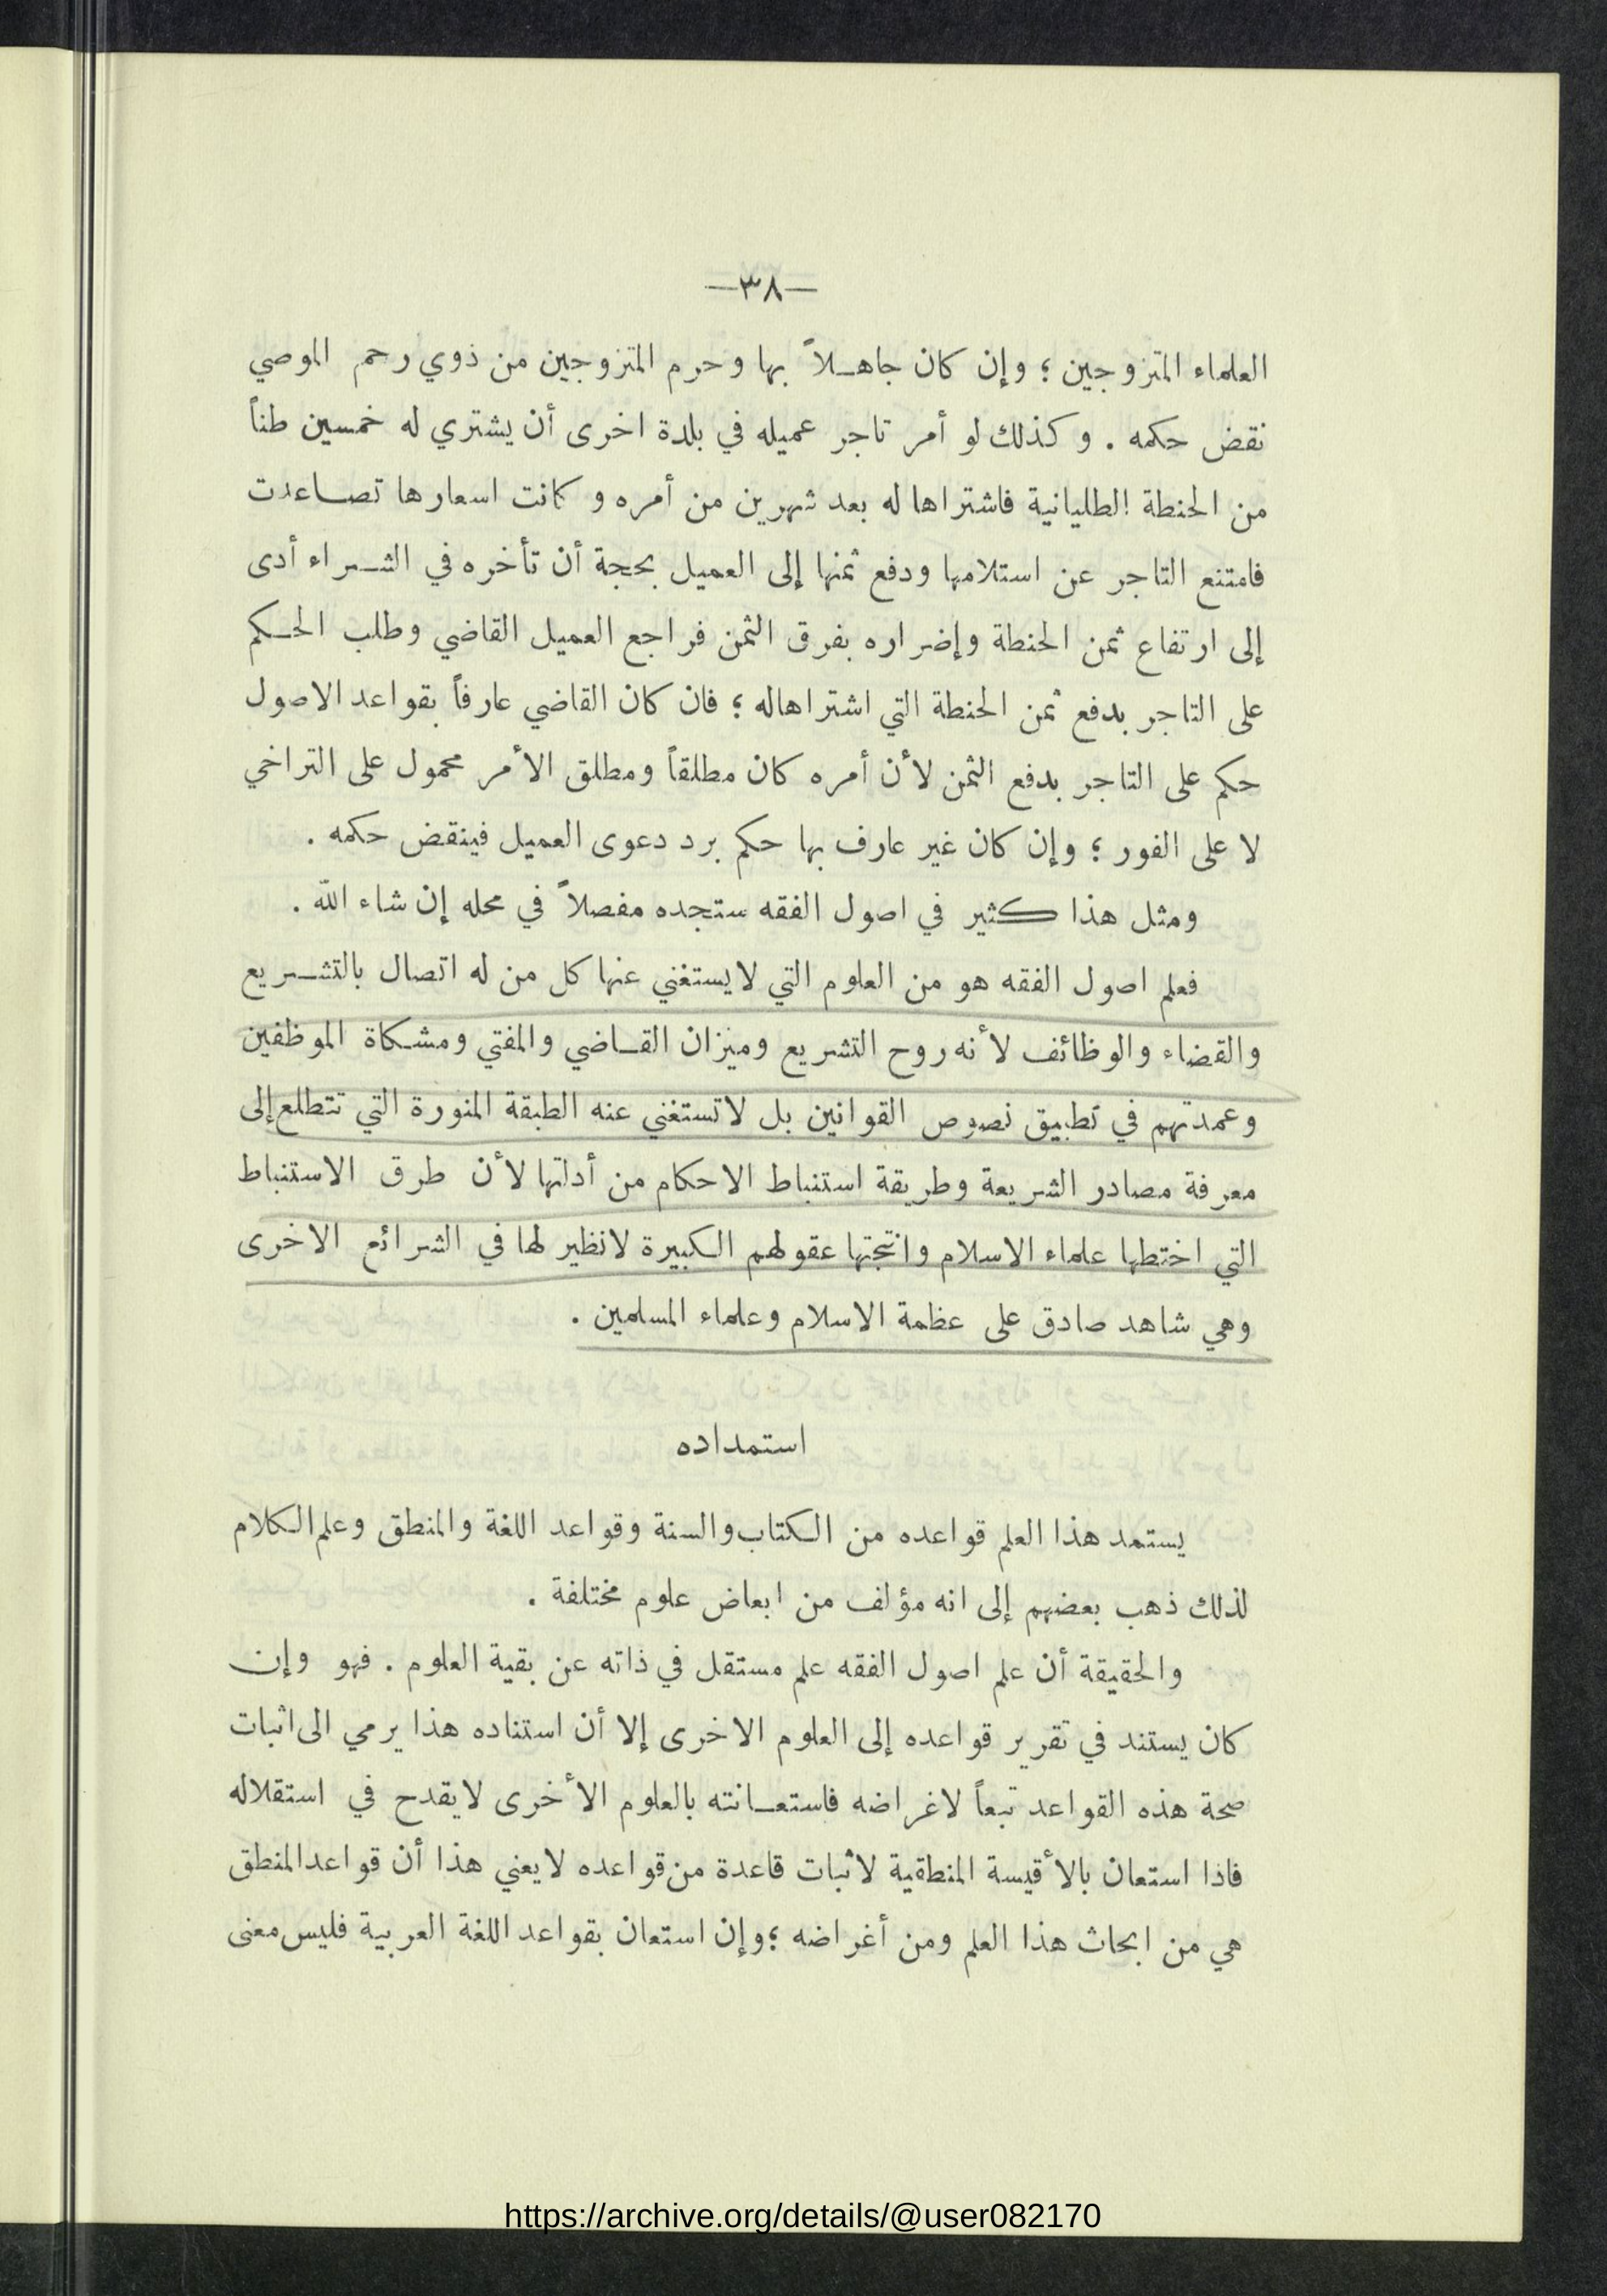 —٣٨—
العلماء المتزوجين ؛ وإن كان جاهـلاً بها وحرم المتزوجين من ذوي رحم الموصي
نقض حكمه . وكذلك لو أمر تاجر عميله في بلدة اخرى أن يشتري له خمسين طناً
من الحنطة الطليانية فاشتراها له بعد شهرين من أمره وكانت اسعارها تصـاعدت
فامتنع التاجر عن استلامها ودفع ثمنها إلى العميل بحجة أن تأخره في الشـراء أدى
إلى ارتفاع ثمن الحنطة وإضراره بفرق الثمن فراجع العميل القاضي وطلب الحـكم
على التاجر بدفع ثمن الحنطة التي اشتراهاله ؛ فان كان القاضي عارفاً بقواعد الاصول
حكم على التاجر بدفع الثمن لأن أمره كان مطلقاً ومطلق الأمر محمول على التراخي
لا على الفور ؛ وإن كان غير عارف بها حكم برد دعوى العميل فينقض حكمه .
ومثل هذا كثير في اصول الفقه ستجده مفصلاً في محله إن شاء الله .
فعلم اصول الفقه هو من العلوم التي لايستغني عنها كل من له اتصال بالتشـريع
والقضاء والوظائف لأنه روح التشريع وميزان القـاضي والمفتي ومشـكاة الموظفين
وعمدتهم في تطبيق نصوص القوانين بل لاتستغني عنه الطبقة المنورة التي تتطلع إلى
معرفة مصادر الشريعة وطريقة استنباط الاحكام من أدلتها لأن طرق الاستنباط
التي اختطها علماء الاسلام وانتجتها عقولهم الكبيرة لانظير لها في الشرائع الاخرى
وهي شاهد صادق على عظمة الاسلام وعلماء المسلمين .
استمداده
يستمد هذا العلم قواعده من الكتاب والسنة وقواعد اللغة والمنطق وعلم الكلام
لذلك ذهب بعضهم إلى انه مؤلف من ابعاض علوم مختلفة .
والحقيقة أن علم اصول الفقه علم مستقل في ذاته عن بقية العلوم . فهو وإن
كان يستند في تقرير قواعده إلى العلوم الاخرى إلا أن استناده هذا يرمي الى اثبات
صحة هذه القواعد تبعاً لاغراضه فاستعـانته بالعلوم الأخرى لايقدح في استقلاله
فاذا استعان بالأقيسة المنطقية لاثبات قاعدة من قواعده لايعني هذا أن قواعد المنطق
هي من ابحاث هذا العلم ومن أغراضه ؛ وإن استعان بقواعد اللغة العربية فليس معنى
https://archive.org/details/@user082170